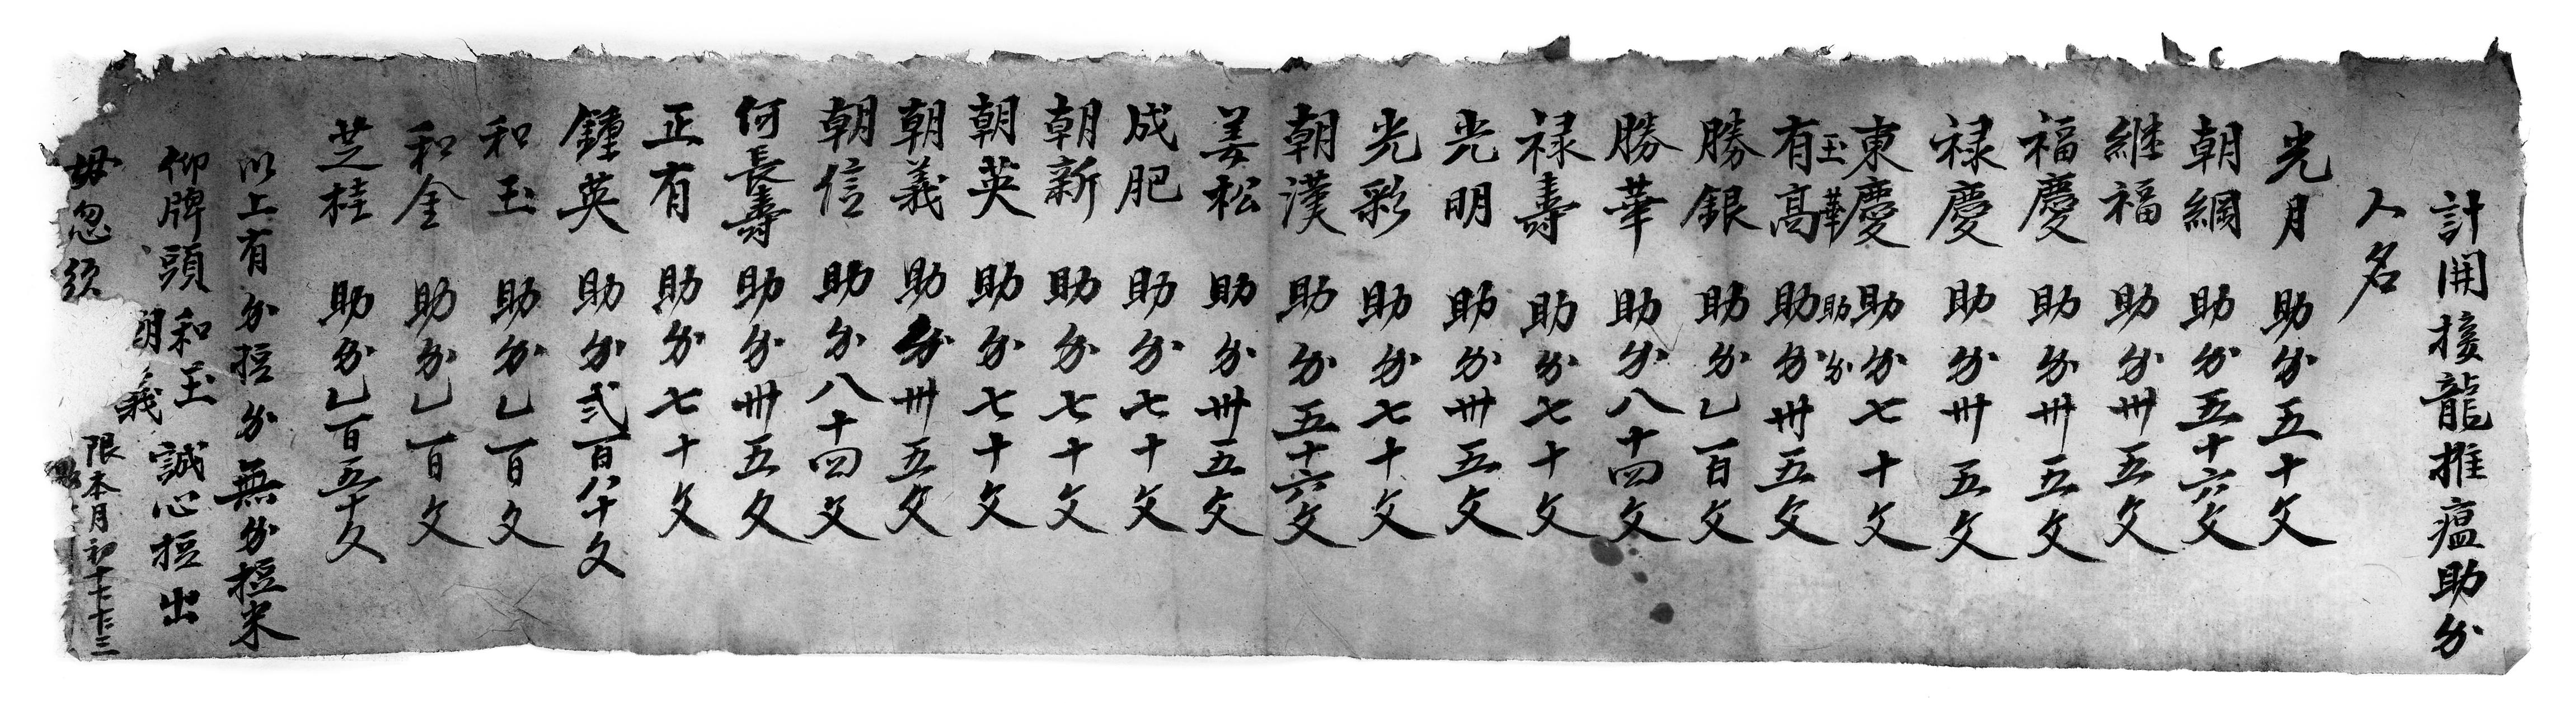 計開接龍推瘟助分
人名
光月 助分五十文
朝綱 助分五十六文
継福 助分卅五文
福慶 助分卅五文
禄慶 助分卅五文
東慶 助分七十文
玉華 助分
有高 助分卅五文
勝銀 助分乙百文
勝華 助分八十四文
禄壽 助分七十文
光明 助分卅五文
光彩 助分七十文
朝漢 助分五十六文
姜松 助分卅五文
成肥 助分七十文
朝新 助分七十文
朝英 助分七十文
朝義 助分卅五文
朝信 助分八十四文
何長壽 助分卅五文
正有 助分七十文
鍾英 助分弍百八十文
和玉 助分乙百文
和金 助分乙百文
芝桂 助分乙百五十文
以上有分拒分無分拒米
仰牌頭和玉 誠心拒出
朝義
毋忽須
限本月初十